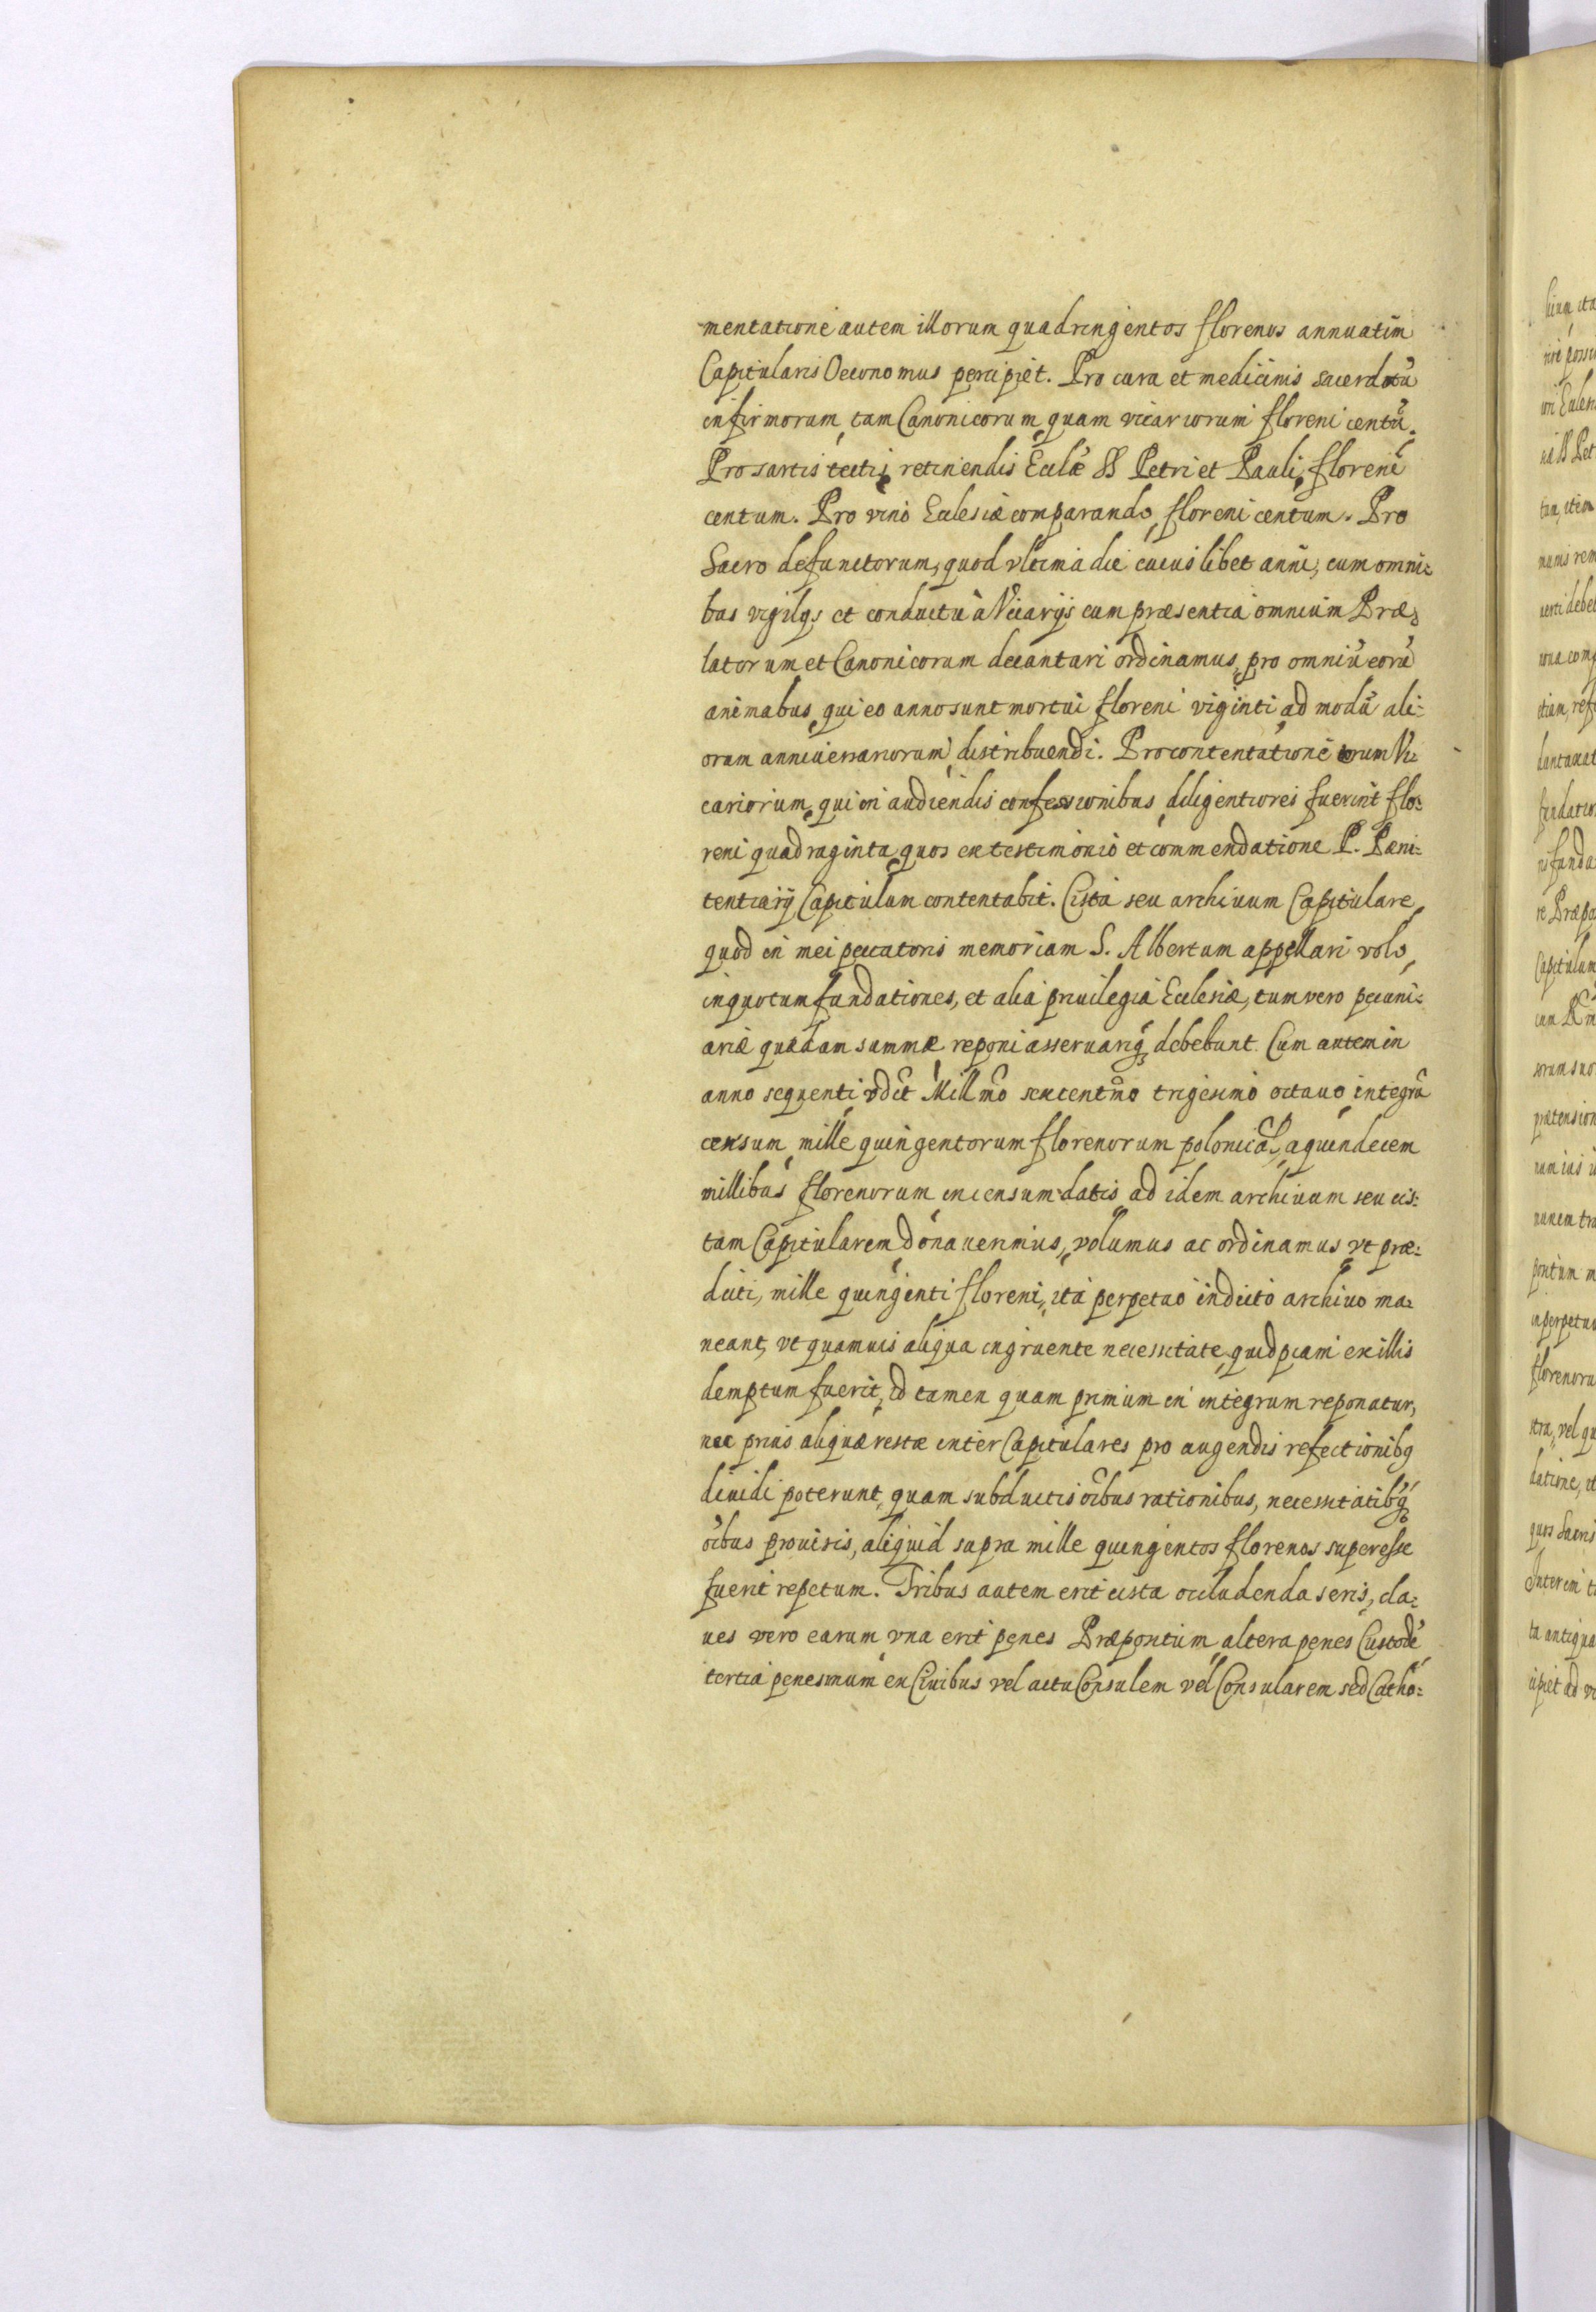 mentatione autem illorum quadringentos florenos annuatim
Capitularis Oeconomus percipiet. Pro cura et medicinis sacerdotū
infirmorum, tam Canonicorum, quam vicariorum floreni centū.
Pro sartis tectis, retinendis Eccłæ SS Petri et Pauli, floreni
centum. Pro vino Ecclesiæ comparando, floreni centum. Pro
Sacro defunctorum, quod vltima die cuiuslibet anni, cum omni=
bus vigilijs et conductu à Vicarijs cum præsentia omnium Præ=
latorum et Canonicorum decantari ordinamus, pro omniū eorū
animabus, qui eo anno sunt mortui floreni viginti, ad modū ali=
orum anniuersariorum, distribuendi. Pro contentatione eorum Vi=
cariorum, qui in audiendis confessionibus, diligentiores fuerint flo=
reni quadraginta, quos ex testimonio et commendatione P. Pæni=
tentiarij Capitulum contentabit. Cista seu archiuum Capitulare,
quod in mei peccatoris memoriam S. Albertum appellari volo,
in quo tum fundationes, et alia priuilegia Ecclesiæ, tum vero pecuni=
ariæ quædam summæ reponi asseruariq̃ debebunt. Cum autem in
anno sequenti, vdct Millmo sexcentmo trigesimo octauo, integrū
censum, mille quingentorum florenorum polonicał, a quindecem
millibus florenorum in censum datis, ad idem archiuum seu cis=
tam Capitularem donauerimus, volumus ac ordinamus, vt præ=
dicti, mille quingenti floreni, ita perpetuo in dicto archiuo ma=
neant, vt quamuis aliqua ingruente necessitate, quidpiam ex illis
demptum fuerit, id tamen quam primum in integrum reponatur,
nec prius aliquæ restæ inter Capitulares pro augendis refectionibq
diuidi poterunt, quam subductis oībus rationibus, necessitatibq́
oībus prouisis, aliquid supra mille quingentos florenos superesse
fuerit repetum. Tribus autem erit cista occludenda seris, cla=
ues vero earum, vna erit penes Præpositum, altera penes Custodē
tertia penes unum ex Ciuibus vel actu Consulem vel Consularem sed Catho=